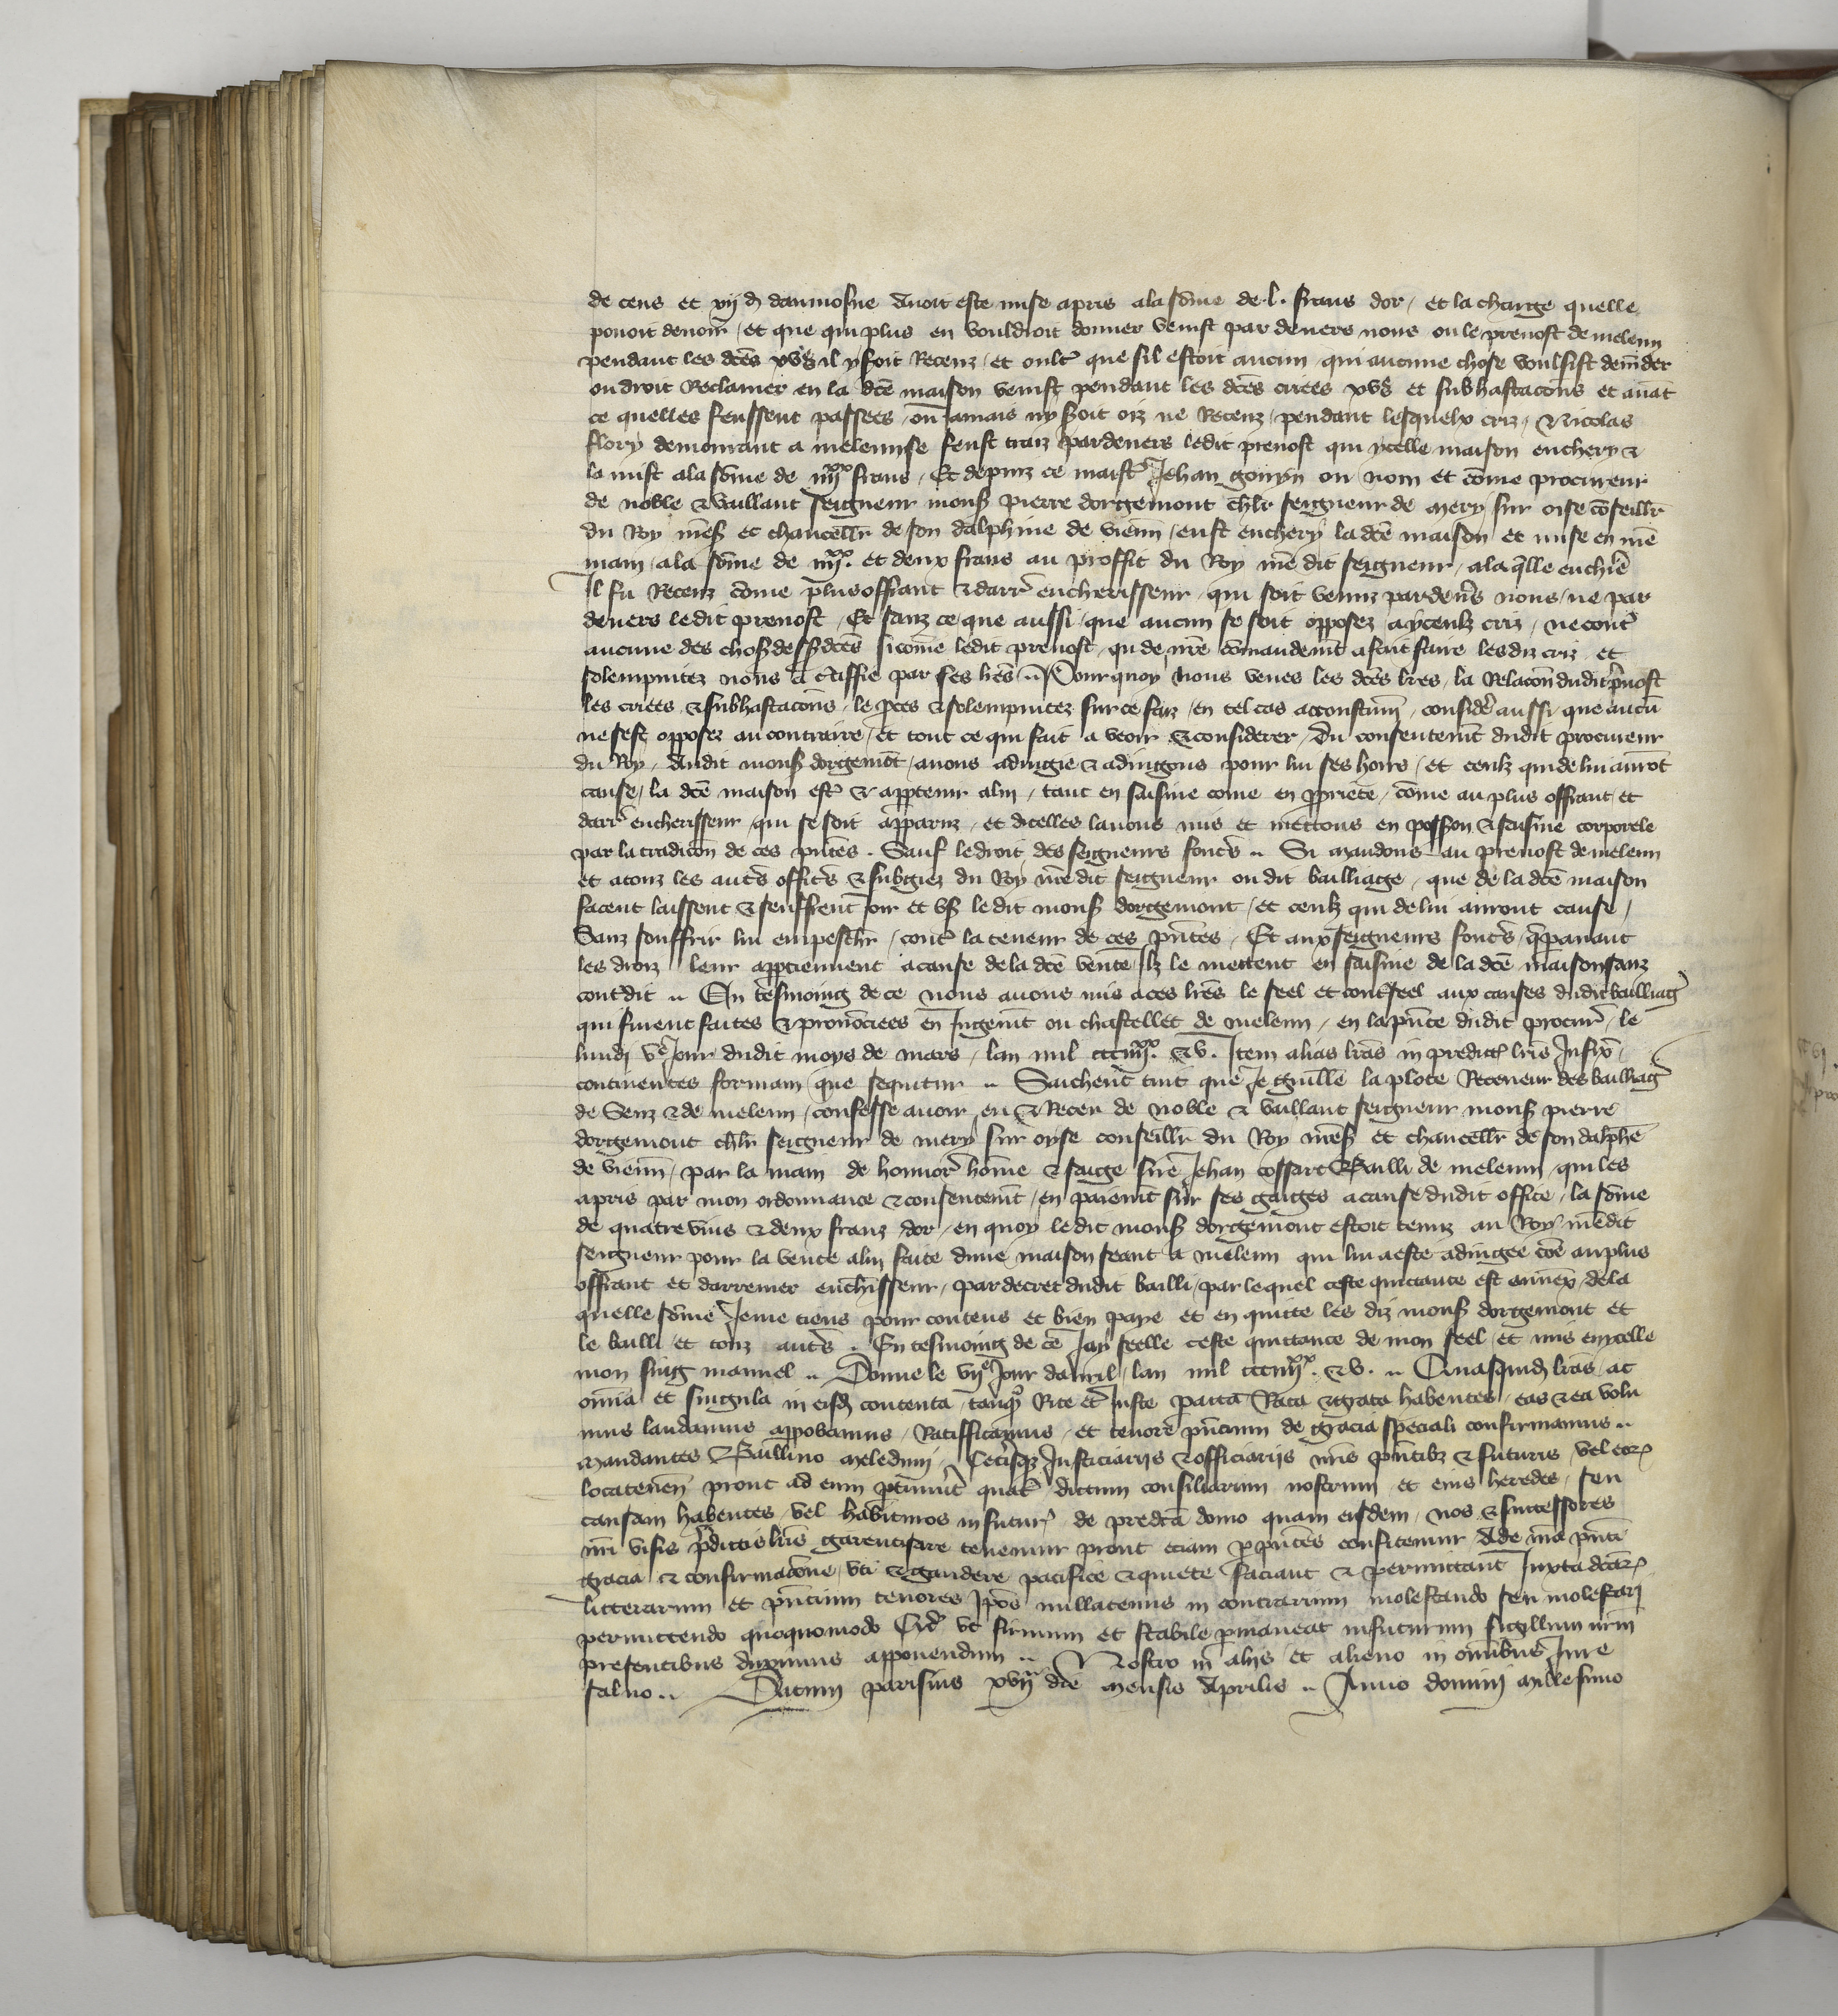 de cens et xij d̃ daumosne Avoit este mise a pris a la so̅me de .l. frans dor / et la charge quelle
povoit devoir / et que qui plus en vouldroit donner venist par devers nous ou le prevost de meleun
pendant les dc̅es xv.ᵉ il y s̾oit Receuz / et oult̾ que sil estoit aucun qui aucune chose voulsist dem̅der
ou droit Reclamer en la dc̅e maison venist pendant les dc̅es criees xv.ᵉ et subhastac̅ons et ava̅t
ce quelles feussent passees ou Iamais ny s̾oit oiz ne Receuz / pendant lesquelx criz / Nicolas
flory demourant a meleun se feust traiz par devers ledit prevost qui ycelle maison enchery &
la mist a la so̅me de iiij.ˣˣ frans / Et depuiz ce maist̾ Jehan gouyn ou nom et co̅me procureur
de noble & vaillant seigneur mons̾ pierre dorgemont ch̅lr seigneur de mery sur oise co̅seill̅r
du Roy n̅res̾ et chancell̅r de son dalphine de vienn̅ / eust enchery la dc̅e maison et mise en n̅re
main a la so̅me de iiij.ˣˣ et deux frans au proffit du Roy n̅re dit seigneur / a la q̅lle enchie̅
Il fu Receuz co̅me plus offrant & darr̾ encherisseur qui soit venuz par dev̾s nous / ne par
devers le dit prevost / Et sanz ce que aussi que aucun se soit opposez a yceulz criz / ne cont̾
aucune des chos̾ dess̾dc̅es si co̅me ledit prevost / qui de n̅re co̅mandem̅t a fait faire lesdiz criz et
solempnitez nous a c̾tiffie par ses lr̅es .. Pourquoy Nous veues les dc̅es lr̅es / la Relac̅on dudit p̾vost
les criees & subhastac̅ons / le p̱ces & solempnitez sur ce faiz / en tel cas acoustum̅ / considere̾ aussi que aucu̅
ne sest opposez au contraire / et tout ce qui fait a veoir & considerer / Du consentem̅t dudit procureur
du Roy / Audit mons̾ dorgemo̅t / avons adiugie & adiugons pour lui ses hoirs / et ceulz qui de lui auro̅t
cause / la dc̅e maison est̾ & app̱tenir a luy / tant en saisine come en p̱priete / co̅me au plus offrant et
darr̾ encherisseur / qui se soit apparuz / et dicelles lavons mis et mettons en poss̾on & saisine corporele
par la tradic̅on de ces pn̅tes . Sauf le droit des seigneurs fonc̾s .. Si Mandons au prevost de meleun
et a touz les aut̾s offic̾s & subgiez du Roy n̅re dit seigneur ou dit bailliage / que de la dc̅e maison
facent laissent & seuffrent Joir et us̾ le dit mons̾ dorgemont / et ceulz qui de lui auront cause /
Sanz souffrir lui empesch̅r / cont̾ la teneur de ces pn̅tes / Et aux seigneurs fonc̾s q̅ paravant
les droiz leur app̱tiennent a cause de la dc̅e vente Ilz le mettent en saisine de la dc̅e maison sanz
cont̾dit .. En tesmoing de ce nous avons mis a ces lr̅es le seel et cont̾seel aux causes dudit bailliage̾
qui furent faites & prono̅ciees en Jugem̅t ou chastellet de meleun / en la pn̅ce dudit procur̾ / le
lundi vᵉ Jour dudit moys de mars / lan mil ccciiij.ˣˣ & v. Item alias lr̅as in predict̾ lr̅is Infix̾
continentes formam / que sequitur .. Saichent tuit que Je guill̅e la plote Receveur des bailliage̾
de Senz & de meleun / confesse avoir eu & Receu de Noble & vaillant seigneur mons̾ pierre
dorgemont ch̅lr seigneur de mery sur oyse conseill̅r du Roy n̅res̾ et chancell̅r de son dalphie̅
de vienn̅ / par la main de honnor̾ ho̅me & saige sire̅ Jehan cossart Bailli de meleun / qui les
a pris par mon ordonnance & consentem̅t / en paiem̅t sur ses gaiges a cause dudit office / la so̅me
de quatrevins & deux franz dor / en quoy le dit mons̾ dorgemont estoit tenuz au Roy n̅redit
seigneur pour la vente a luy faite dune maison seant a meleun qui lui a este adiugee co̅e au plus
offrant et darrenier ench̾isseur / par decret dudit bailli / par lequel ceste quictance est annex̾ / de la
quelle so̅me Je me tiens pour contens et bien paye et en quitte les diz mons̾ dorgemont et
le bailli / et touz aut̾s . En tesmoing de ce̅ Jay seelle ceste quictance de mon seel et mis en ycelle
mon sing manuel .. Donne le vijᵉ Jour davril / lan mil ccciiij.ˣˣ & v. .. Quasquid̾ lr̅as ac
om̅ia et singula in eisd̾ contenta / tanq̾ Rite et Juste pacta Rata & grata habentes / eas & ea volu
mus laudamus app̱bamus / Ratifficamus / et tenore pn̅cium de gracia speciali confirmamus ..
Mandantes Baillivo Meleduni / Cet̾isq̾ Justiciariis & officiariis n̅ris pn̅tibz & futuris / vel eor̾
locaten̅ prout ad eum p̱tinuit̾ quat̾ dictum consiliarium nostrum et eius heredes / seu
causam habentes / vel habituros in futur̾ de predc̅a domo quam eisdem / nos & successores
n̅ri visis p̾dictis lr̅is garentisare tenemur prout eciam p̱ pn̅tes confitemur Ac de n̅ra pn̅ti
gracia & confirmac̅one / uti & gaudere pacifice & quiete faciant & permittant Juxta dc̅ar̾
litterarum et pn̅cium tenores Ip̅os nullatenus in contrarium molestando seu molestari
permittendo quoquomodo Qd̾ ut firmum et stabile p̱maneat in futurum sigillum n̅rm
presentibus duximus apponendum .. Nostro in̅ aliis et alieno in om̅ibus Jure
salvo .. Datum parisius xvij.ᵃ die Mensis Aprilis .. Anno domini Millesimo